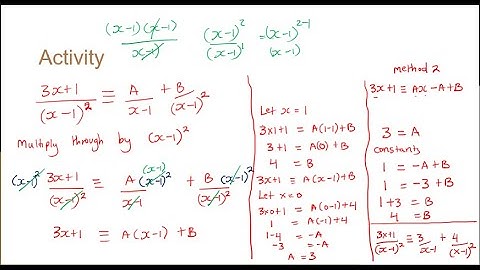 (x-1)(x-1)/(x-1) (x-1)²/(x-1)¹ =(x-1)²⁻¹/(x-1)
Activity
(3x+1)/(x-1)² ≡ A/(x-1) + B/(x-1)²
Multiply through by (x-1)²
(x-1)² (3x+1)/(x-1)² ≡ A(x-1)²/(x-1) (x-1) + B(x-1)²/(x-1)²
3x+1 ≡ A(x-1) + B
Let x = 1
3x1+1 = A(1-1)+B
3+1 = A(0)+B
4 = B
3x+1 ≡ A(x-1)+B
Let x=0
3x0+1 = A(0-1)+4
1 = A(-1)+4
1-4 = -A
-3 = -A
A = 3
method 2
3x+1 ≡ Ax-A+B
3 = A
constants
1 = -A+B
1 = -3+B
1+3 = B
4 = B
(3x+1)/(x-1)² ≡ 3/(x-1) + 4/(x-1)²